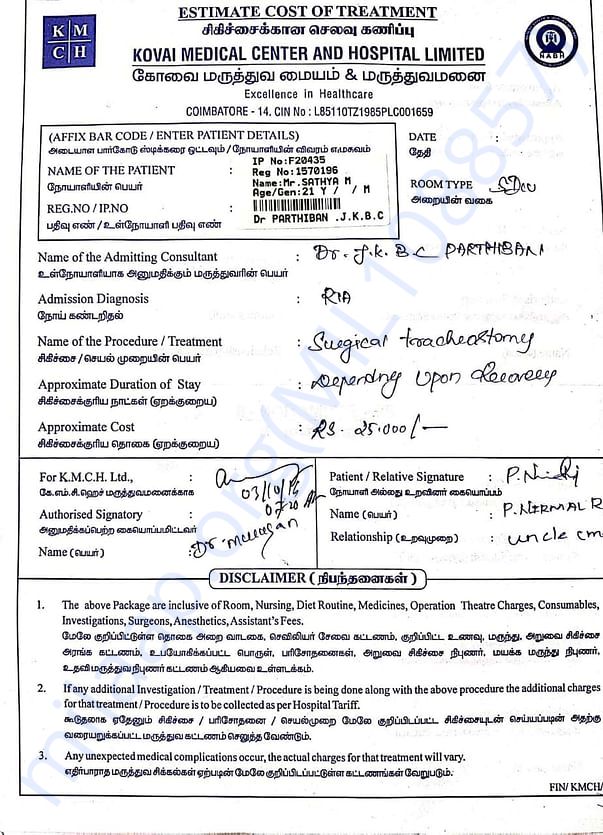 ESTIMATE COST OF TREATMENT
சிகிச்சைக்கான செலவு கணிப்பு
KM
CH
KOVAI MEDICAL CENTER AND HOSPITAL LIMITED
NABH
கோவை மருத்துவ மையம் & மருத்துவமனை
Excellence in Healthcare
COIMBATORE - 14. CIN No : L85110TZ1985PLC001659
(AFFIX BAR CODE / ENTER PATIENT DETAILS)
அடையாள பார்கோடு ஸ்டிக்கரை ஒட்டவும் / நோயாளியின் விவரம் எழுதவும்
IP No:F20435
Reg No:1570196
Name:Mr.SATHYA M
Age/Gen:21 Y / / M
Dr PARTHIBAN .J.K.B.C
NAME OF THE PATIENT :
நோயாளியின் பெயர்
REG.NO / IP.NO :
பதிவு எண் / உள்நோயாளி பதிவு எண்
DATE :
தேதி
ROOM TYPE
அறையின் வகை
Name of the Admitting Consultant : Dr. J.K.B.C PARTHIBAN
உள்நோயாளியாக அனுமதிக்கும் மருத்துவரின் பெயர்
Admission Diagnosis : RTA
நோய் கண்டறிதல்
Name of the Procedure / Treatment : Surgical tracheostomy
சிகிச்சை / செயல் முறையின் பெயர்
Approximate Duration of Stay : Depending Upon Recovery
சிகிச்சைக்குரிய நாட்கள் (ஏறக்குறைய)
Approximate Cost : RS. 25.000/-
சிகிச்சைக்குரிய தொகை (ஏறக்குறைய)
For K.M.C.H. Ltd., :
கே.எம்.சி.ஹெச் மருத்துவமனைக்காக
03/10/
07.20
Authorised Signatory :
அனுமதிக்கப்பெற்ற கையொப்பமிட்டவர்
Name (பெயர்) : Dr
Patient / Relative Signature :
நோயாளி அல்லது உறவினர் கையொப்பம்
Name (பெயர்) : P.NIRMAL R
Relationship (உறவுமுறை) : uncle
DISCLAIMER (நிபந்தனைகள்)
1. The above Package are inclusive of Room, Nursing, Diet Routine, Medicines, Operation Theatre Charges, Consumables,
Investigations, Surgeons, Anesthetics, Assistant's Fees.
மேலே குறிப்பிட்டுள்ள தொகை அறை வாடகை, செவிலியர் சேவை கட்டணம், குறிப்பிட்ட உணவு, மருந்து, அறுவை சிகிச்சை
அரங்க கட்டணம், உபயோகிக்கப்பட்ட பொருள், பரிசோதனைகள், அறுவை சிகிச்சை நிபுணர், மயக்க மருந்து நிபுணர்,
உதவி மருத்துவ நிபுணர் கட்டணம் ஆகியவை உள்ளடக்கம்.
2. If any additional Investigation / Treatment / Procedure is being done along with the above procedure the additional charges
for that treatment / Procedure is to be collected as per Hospital Tariff.
கூடுதலாக ஏதேனும் சிகிச்சை / பரிசோதனை / செயல்முறை மேலே குறிப்பிடப்பட்ட சிகிச்சையுடன் செய்யப்படின் அதற்கு
வரையறுக்கப்பட்ட மருத்துவ கட்டணம் செலுத்த வேண்டும்.
3. Any unexpected medical complications occur, the actual charges for that treatment will vary.
எதிர்பாராத மருத்துவ சிக்கல்கள் ஏற்படின் மேலே குறிப்பிடப்பட்டுள்ள கட்டணங்கள் வேறுபடும்.
FIN/ KMCH/
milaap.org(MIL1088577